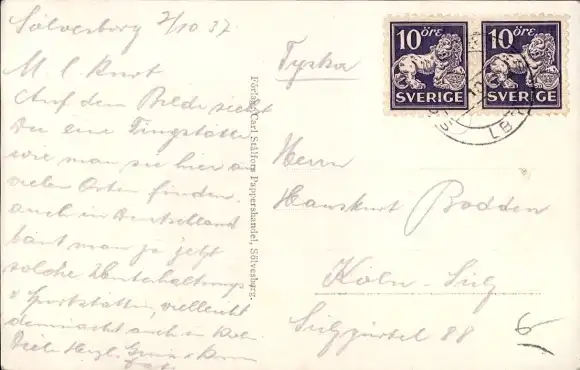 Sölvesborg 2/10 37.
M. l. Kurt
Auf dem Bilde siehst
Du eine Tingstätte
wie man sie hier an
vielen Orten finden.
auch in Deutschland
baut man ja jetzt
solche Unterhaltungs
u Sportstätten, vielleicht
demnächst auch in Köln.
Herzl.
Förlag: Carl Stålfors Pappershandel, Sölvesborg.
10 ÖRE
SVERIGE
10 ÖRE
SVERIGE
LB
Tyska
Herrn
Hanskurt Bodden
Köln-Sülz
Sülzgürtel 88
6